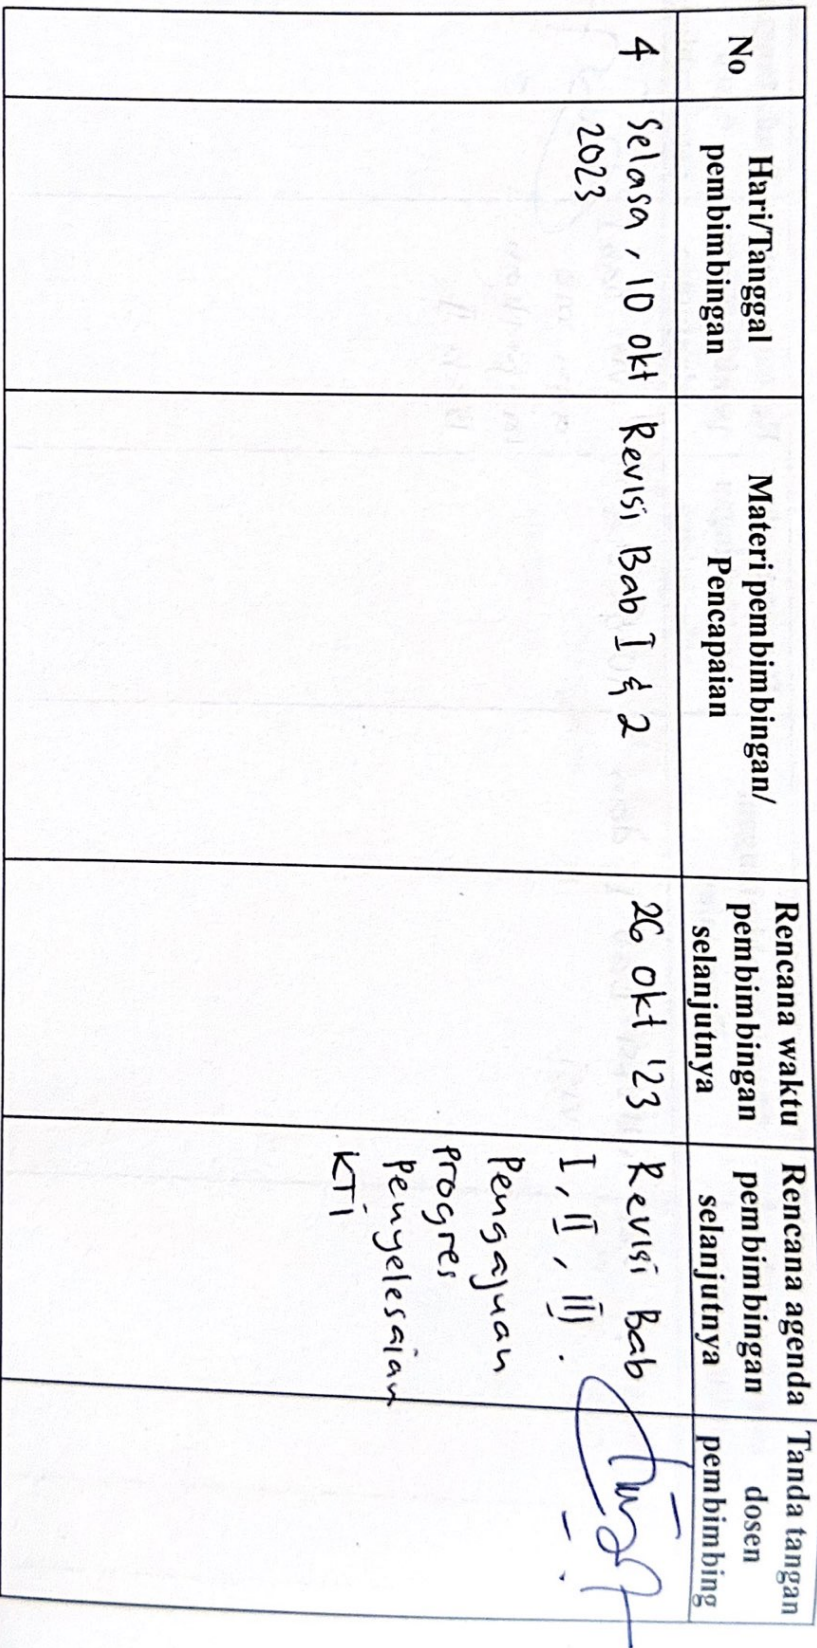 No
Hari/Tanggal
pembimbingan
Materi pembimbingan/
Pencapaian
Rencana waktu
pembimbingan
selanjutnya
Rencana agenda
pembimbingan
selanjutnya
Tanda tangan
dosen
pembimbing
4
Selasa, 10 okt
2023
Revisi Bab I & 2
26 okt '23
Revisi Bab
I, II, III.
Pengajuan
progres
penyelesaian
KTI